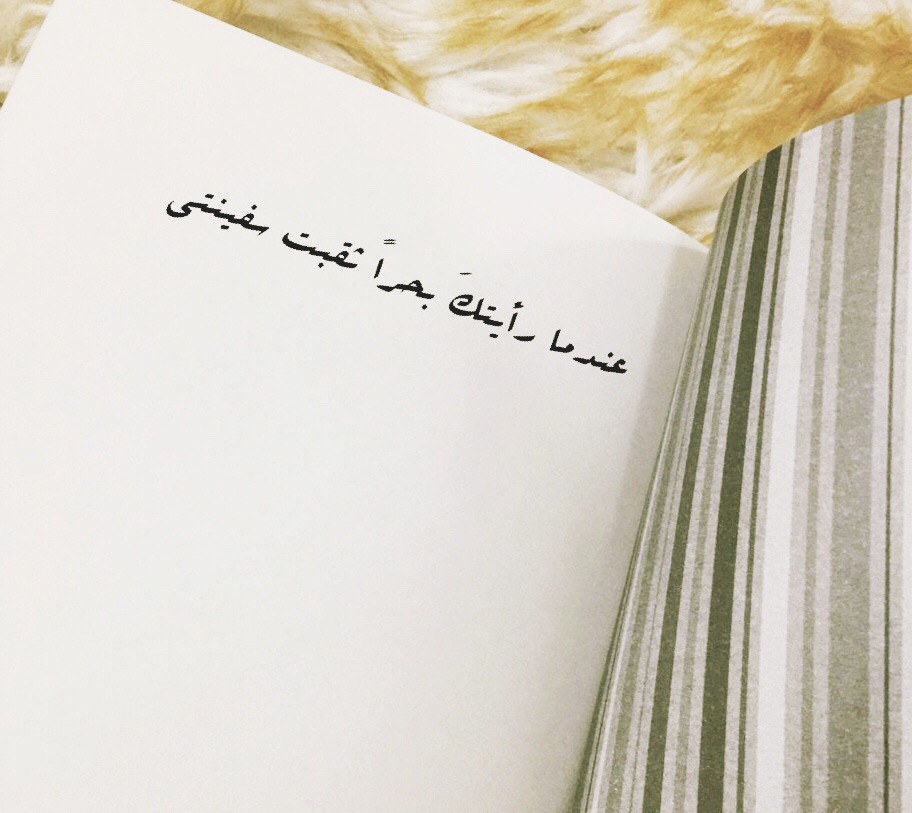 عندما رأيتكَ بحراً ثقبت سفينتي